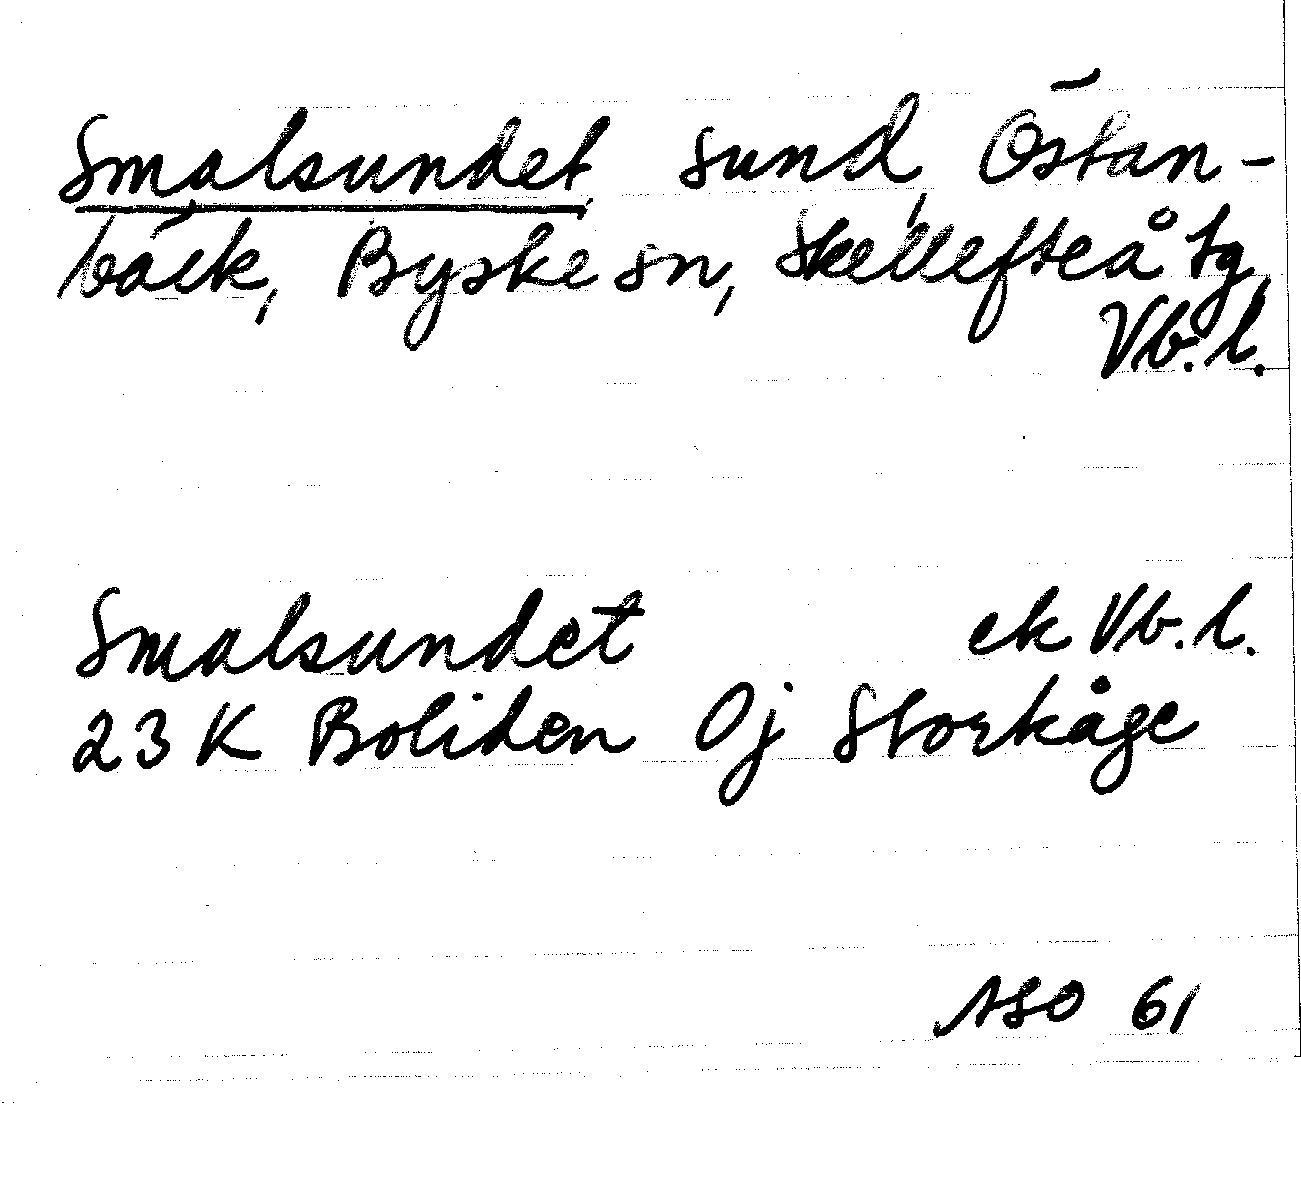 Smalsundet, sund, Östan-
bäck, Byske sn, Skellefteå tg,
Vb.l.
Smalsundet ek Vb.l.
23 K Boliden Oj Storkåge
ASO 61